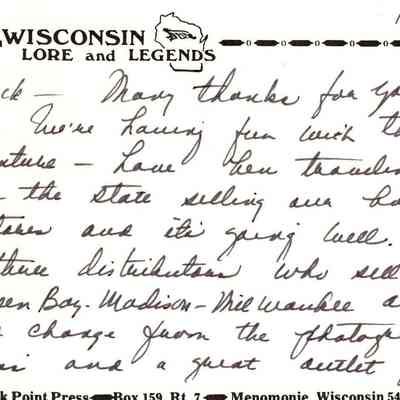 WISCONSIN
LORE and LEGENDS
ck – Many thanks for yo
We're having fun with t
nture – have ben traveli
the state selling our bo
tores and it's going well.
three distributors who sell
een Bay-Madison-Milwaukee a
change from the photogr
and a great outlet
k Point Press Box 159, Rt. 7 Menomonie, Wisconsin 54